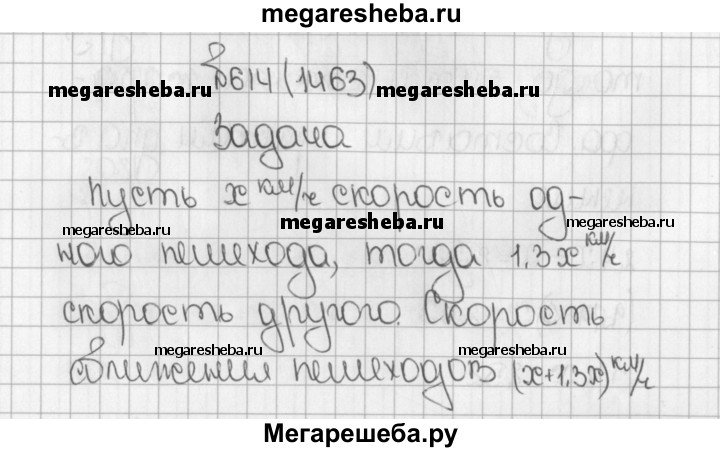 megaresheba.ru
№614 (1463)
megaresheba.ru megaresheba.ru
Задача
Пусть x км/ч скорость од-
megaresheba.ru megaresheba.ru megaresheba.ru
ного пешехода, тогда 1,3x км/ч
скорость другого. Скорость
megaresheba.ru megaresheba.ru
сближения пешеходов (x+1,3x) км/ч
Мегарешеба.ру